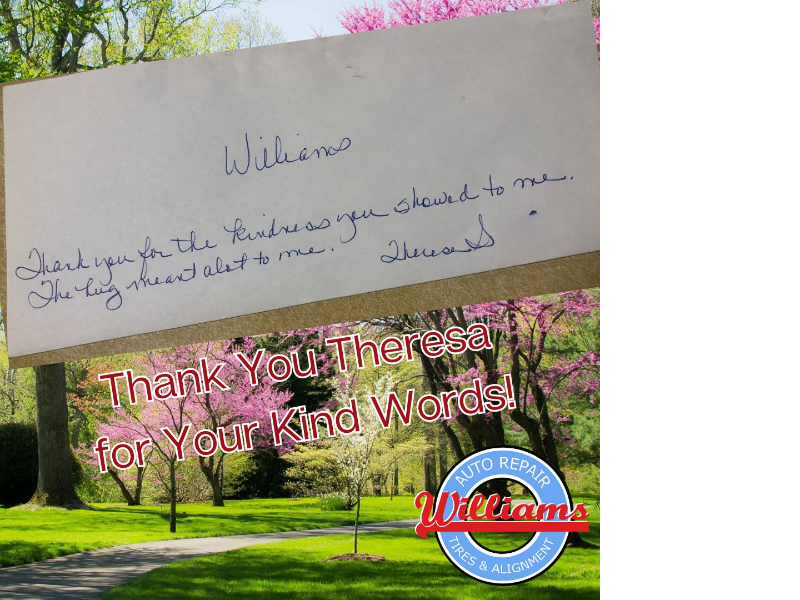 Williams
Thank you for the kindness you showed to me.
The hug meant alot to me.
Theresa S
Thank You Theresa
for Your Kind Words!
AUTO REPAIR
Williams
TIRES & ALIGNMENT